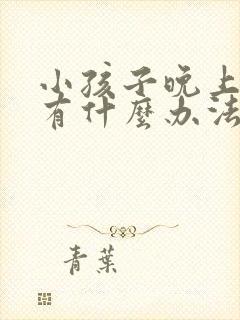 小孩子晚上
有什麼办法
青葉